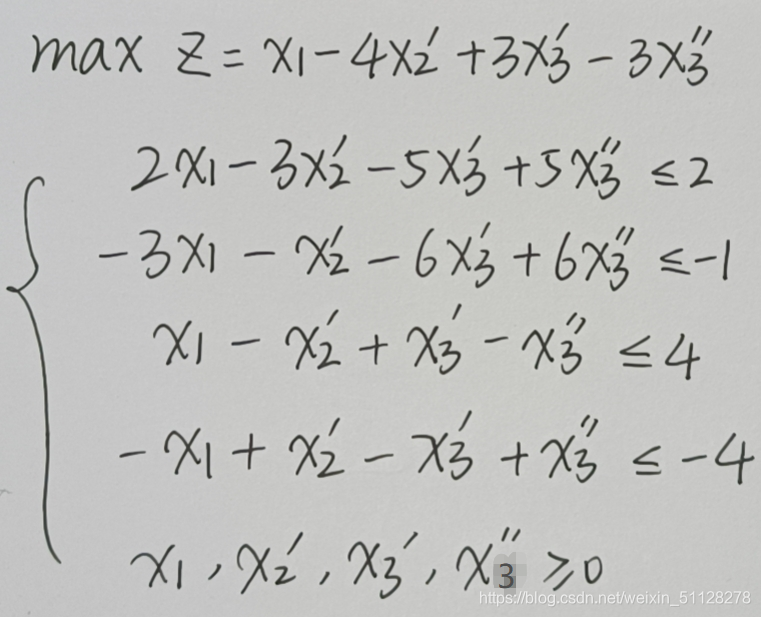 max Z = x₁ - 4x₂′ + 3x₃′ - 3x₃″
2x₁ - 3x₂′ - 5x₃′ + 5x₃″ ≤ 2
-3x₁ - x₂′ - 6x₃′ + 6x₃″ ≤ -1
x₁ - x₂′ + x₃′ - x₃″ ≤ 4
-x₁ + x₂′ - x₃′ + x₃″ ≤ -4
x₁, x₂′, x₃′, x₃″ ≥ 0
https://blog.csdn.net/weixin_51128278